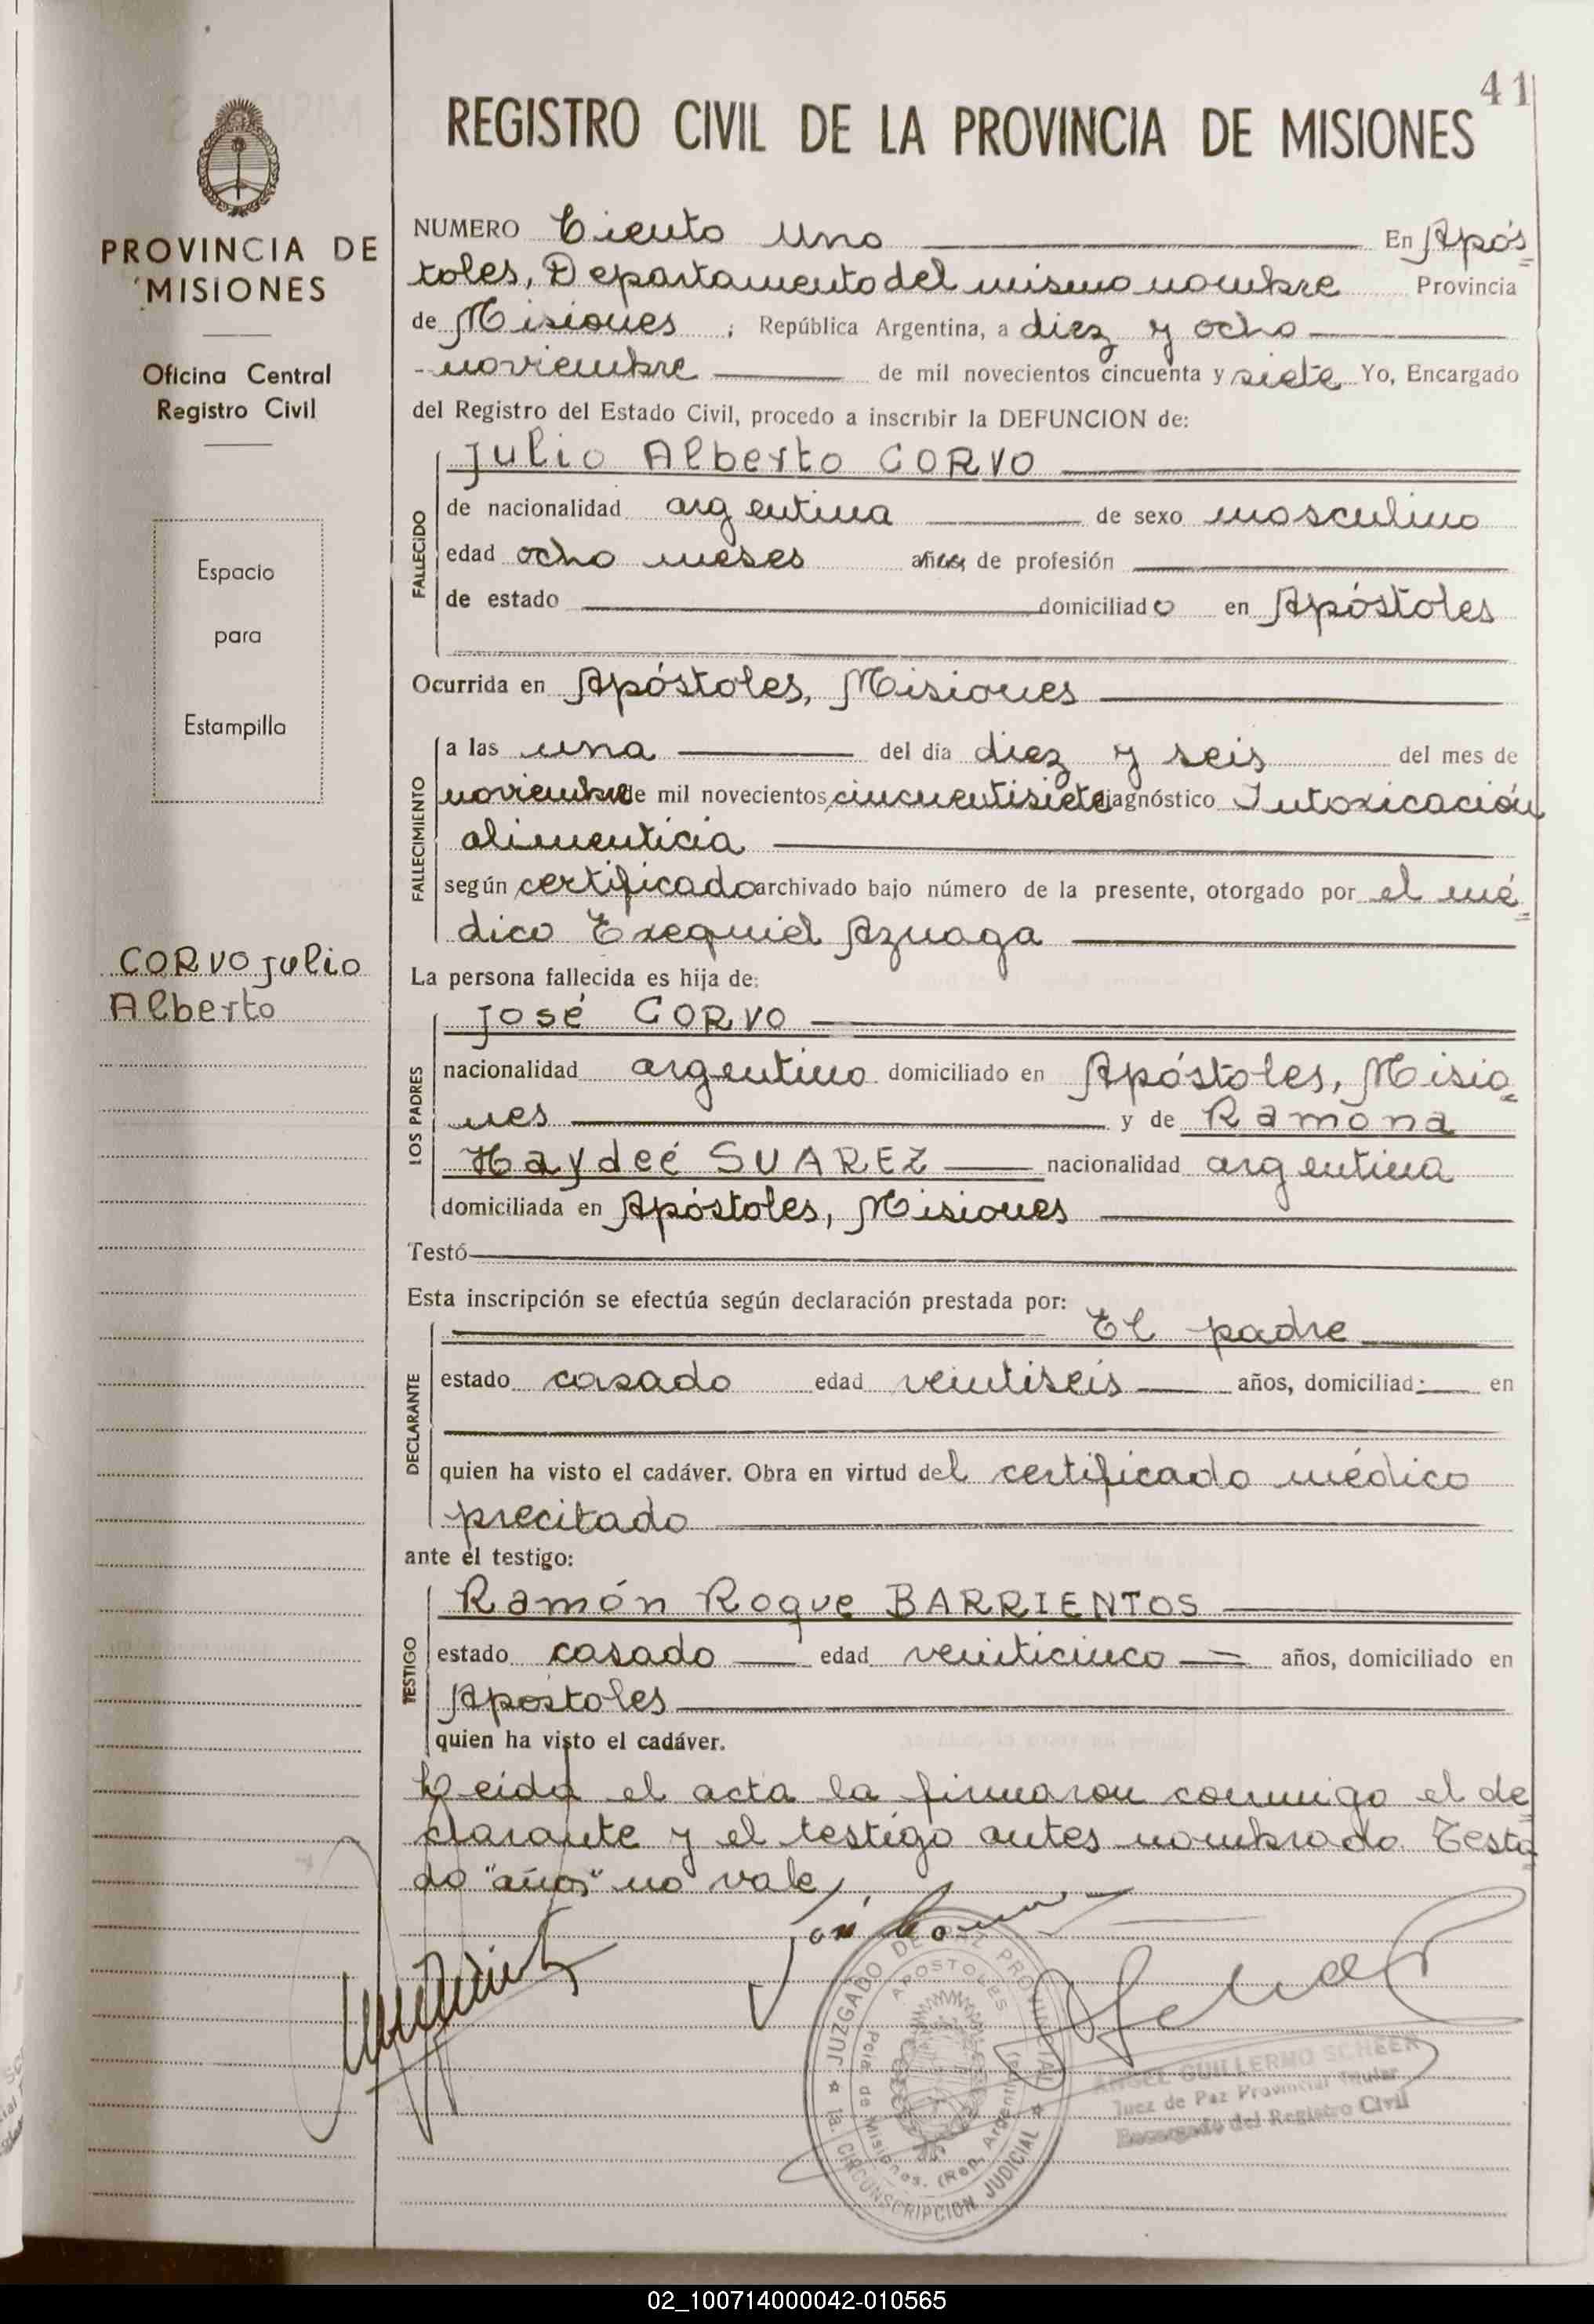 41
REGISTRO CIVIL DE LA PROVINCIA DE MISIONES
PROVINCIA DE
MISIONES
Oficina Central
Registro Civil
Espacio
para
Estampilla
CORVO Julio
Alberto
NUMERO Ciento Uno En Após=
toles, Departamento del mismo nombre Provincia
de Misiones, República Argentina, a diez y ocho
-noviembre de mil novecientos cincuenta y siete Yo, Encargado
del Registro del Estado Civil, procedo a inscribir la DEFUNCION de:
FALLECIDO
Julio Alberto CORVO
de nacionalidad argentina de sexo masculino
edad ocho meses años de profesión
de estado domiciliado en Apóstoles
Ocurrida en Apóstoles, Misiones
FALLECIMIENTO
a las una del día diez y seis del mes de
noviembre de mil novecientos cincuentisiete diagnóstico Intoxicación
alimenticia
según certificado archivado bajo número de la presente, otorgado por el mé=
dico Exequiel Azuaga
La persona fallecida es hija de:
LOS PADRES
José CORVO
nacionalidad argentino domiciliado en Apóstoles, Misio=
nes y de Ramona
Haydeé SUAREZ nacionalidad argentina
domiciliada en Apóstoles, Misiones
Testó
Esta inscripción se efectúa según declaración prestada por:
DECLARANTE
El padre
estado casado edad veintiseis años, domiciliad: en
quien ha visto el cadáver. Obra en virtud del certificado médico
precitado
ante el testigo:
TESTIGO
Ramón Roque BARRIENTOS
estado casado edad veinticinco años, domiciliado en
Apóstoles
quien ha visto el cadáver.
Leída el acta la firmaron conmigo el de=
clarante y el testigo antes nombrado Testa=
do "años" no vale
JUZGADO DE PAZ PROVINCIAL
APOSTOLES
Pcia. de Misiones. (Rep. Argentina)
1a. CIRCUNSCRIPCION JUDICIAL
ANGEL GUILLERMO SCHEER
Juez de Paz Provincial Titular
Encargado del Registro Civil
02_100714000042-010565